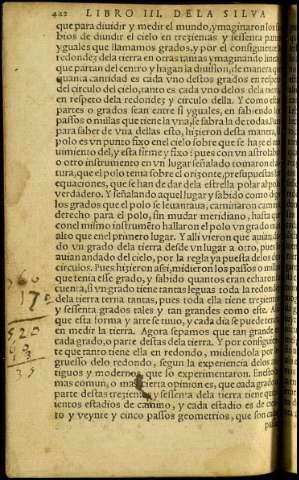 422 LIBRO III. DELA SILVA
que para diuidir y medir el mundo, ymaginaron los sa
bios de diuidir el cielo en trezientas y sessenta partes
yguales que llamamos grados, y por el consiguiente la
redondez dela tierra en otras tantas y ymaginando lineas
que partan del centro y hagan la diuision, de manera que
quanta cantidad es cada vno destos grados en respeto
del circulo del cielo, tanto es cada vno delos dela tierra
en respeto dela redondez y circulo della. Y como estas
partes o grados sean entre si yguales, en sabiendo los
passos o millas que tiene la vna, se sabra la de todas. Pues
para saber de vna dellas esto, hizieron desta manera, el
polo es vn punto fixo en el cielo sobre que se haze el mo
uimiento del, y esta firme y fixo: pues con vn astrolabio
o otro instrumento en vn lugar señalado tomaron del al
tura, que el polo tenia sobre el orizonte, presupuestas las
equaciones, que se han de dar dela estrella polar al polo
verdadero. Y señalando aquel lugar y sabido como digo
los grados que el polo se leuantaua, caminaron camino
derecho para el polo, sin mudar meridiano, hasta que
con el mismo instrumẽto hallaron el polo vn grado mas
alto que en el primero lugar. Y alli vieron que auian da
do vn grado dela tierra desde vn lugar a otro, pues
auian andado del cielo, por la regla ya puesta delos dos
circulos. Pues hizieron assi, midieron los passos o millas
que tenia esse grado, y sabido quantos eran echaron
cuenta, si vn grado tiene tantas leguas toda la redondez
dela tierra terna tantas, pues toda ella tiene trezientos
y sessenta grados tales y tan grandes como este. Assi
que esta forma y arte se tuuo, y cada dia se puede tener
en medir la tierra. Agora sepamos que tan grande es
cada grado, o parte destas dela tierra. Y por consiguien
te que tanto tiene ella en redondo, midiendola por lo
gruesso delo redondo, segun la experiencia delos an
tiguos y modernos que lo experimentaron. En esto la
mas comun, o mas cierta opinion es, que cada grado o
parte destas trezientas y sessenta dela tierra tiene quin
ientos estadios de camino, y cada estadio es de cien
to y veynte y cinco passos geometrios, que son cada
60
17
520